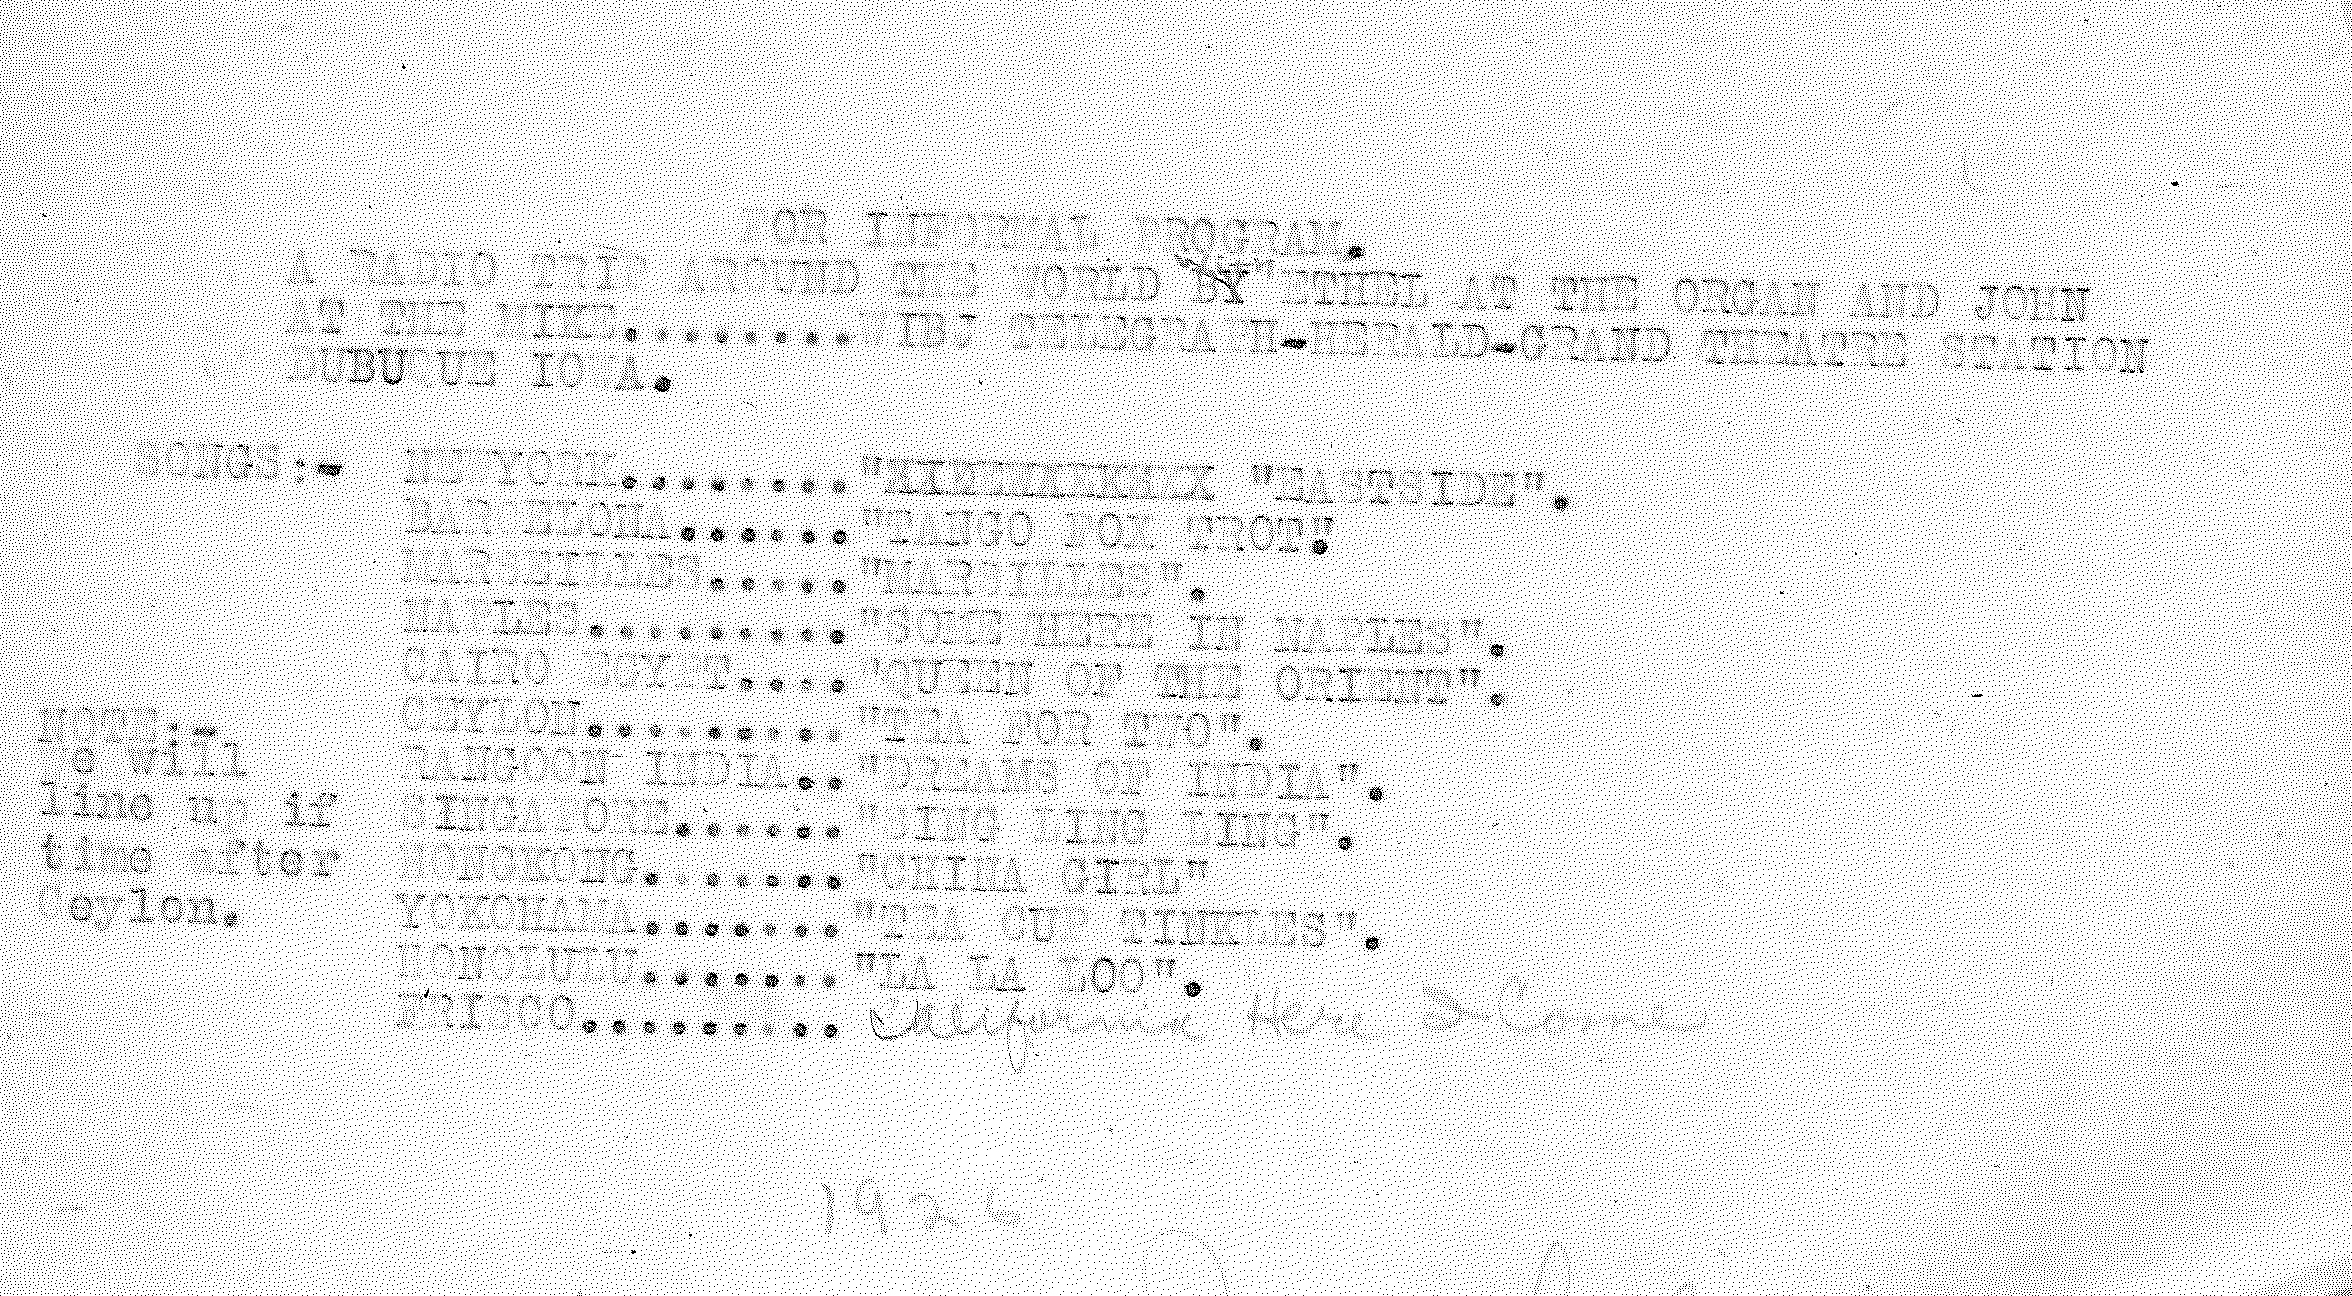 FOR INFORMAL PROGRAM.
A RADIO TRIP AROUND THE WORLD BY ETHEL AT THE ORGAN AND JOHN
AT THE MIKE........WIBJ TELEGRAPH-HERALD-GRAND THEATRE STATION
DUBUQUE IOWA.
SONGS:- NEW YORK........ "EASTSIDE".
BARCELONA...... "TANGO FOX TROT".
MARSEILLES..... "MARSILLES".
NAPLES......... "SOMEWHERE IN NAPLES".
CAIRO EGYPT.... "QUEEN OF THE ORIENT".
CEYLON......... "TEA FOR TWO".
RANGOON INDIA.. "DREAMS OF INDIA".
SINGAPORE...... "LING BING".
HONGKONG....... "CHINA GIRL"
YOKOHAMA....... "TEA CUP TINKLES".
HONOLULU....... "LA LA LOO".
FRISCO......... California Here I Come
NOTE:-
We will
line up if
time after
Ceylon.
192